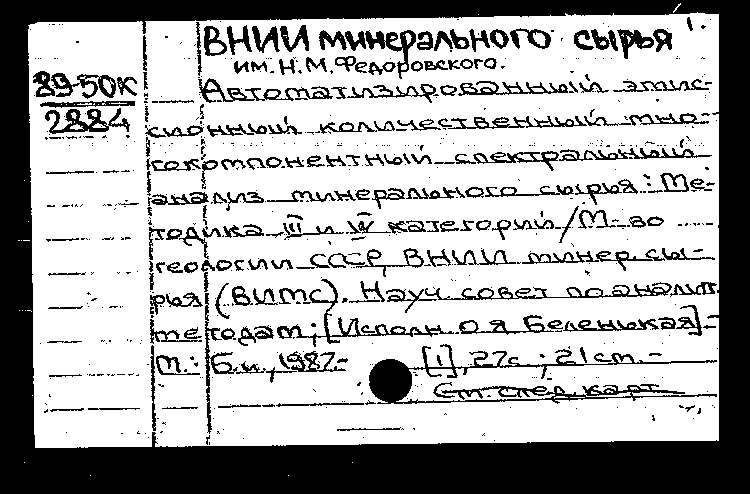 ВНИИ минерального сырья 1.
им. Н.М. Федоровского.
89-50К
2884
Автоматизированный эмис-
сионный количественный мно-
гокомпонентный спектральный
анализ минерального сырья: Ме-
тодика III и IV категорий / М-во
геологии СССР, ВНИИ минер. сы-
рья (ВИМС). Науч. совет по аналит.
методам; [Исполн. О Я Беленькая].-
М.: Б.и., 1987.- [1], 27с.; 21 см.-
См. след. карт.